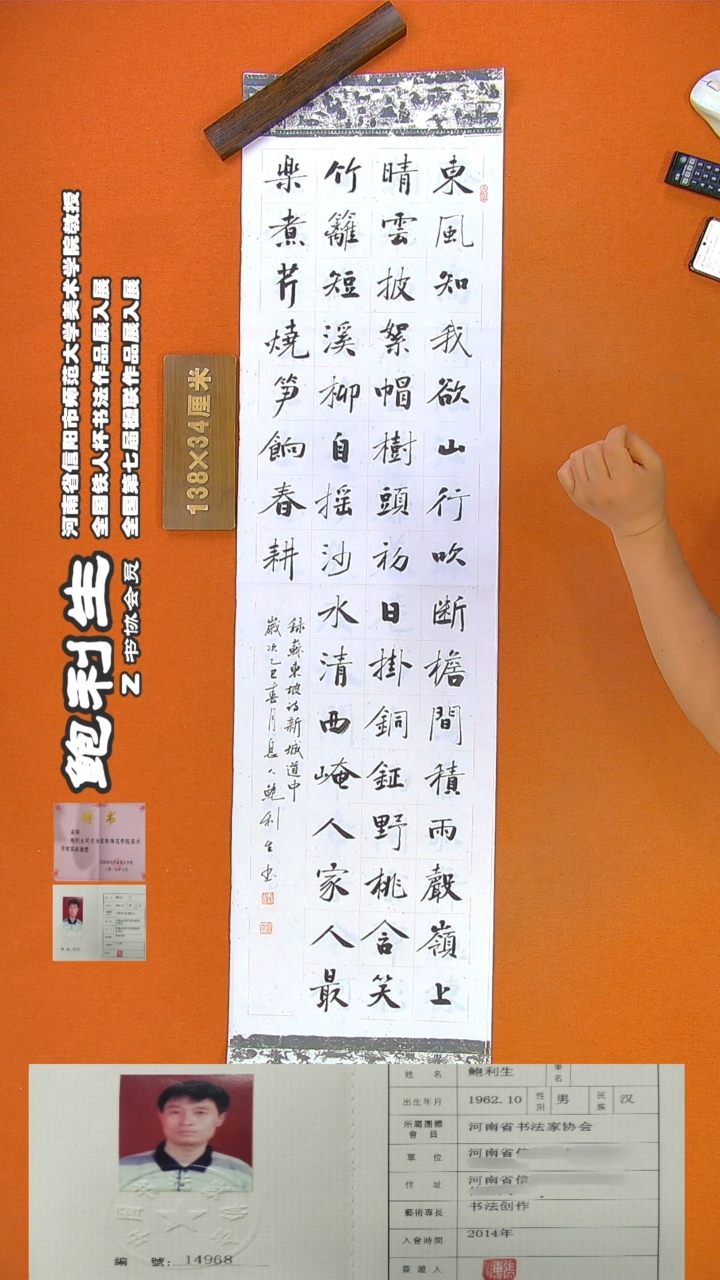 東風知我欲山行吹断檐間積雨聲嶺上
晴雲披絮帽樹頭初日掛銅鉦野桃含笑
竹籬短溪柳自摇沙水清西崦人家人最
樂煮芹燒笋餉春耕
録蘇東坡诗新城道中
歲次乙巳春月
鲍利生书
138×34厘米
河南省信阳市师范大学美术学院教授
全国铁人杯书法作品展入展
全国第七届楹联作品展入展
鲍利生
Z书协会员
聘书
姓名 鲍利生 筆名
出生年月 1962.10 性别 男 民族 汉
所屬團體會員 河南省书法家协会
單位 河南省信
住址 河南省信
藝術專長 书法创作
入會時間 2014年
簽證人
編號: 14968